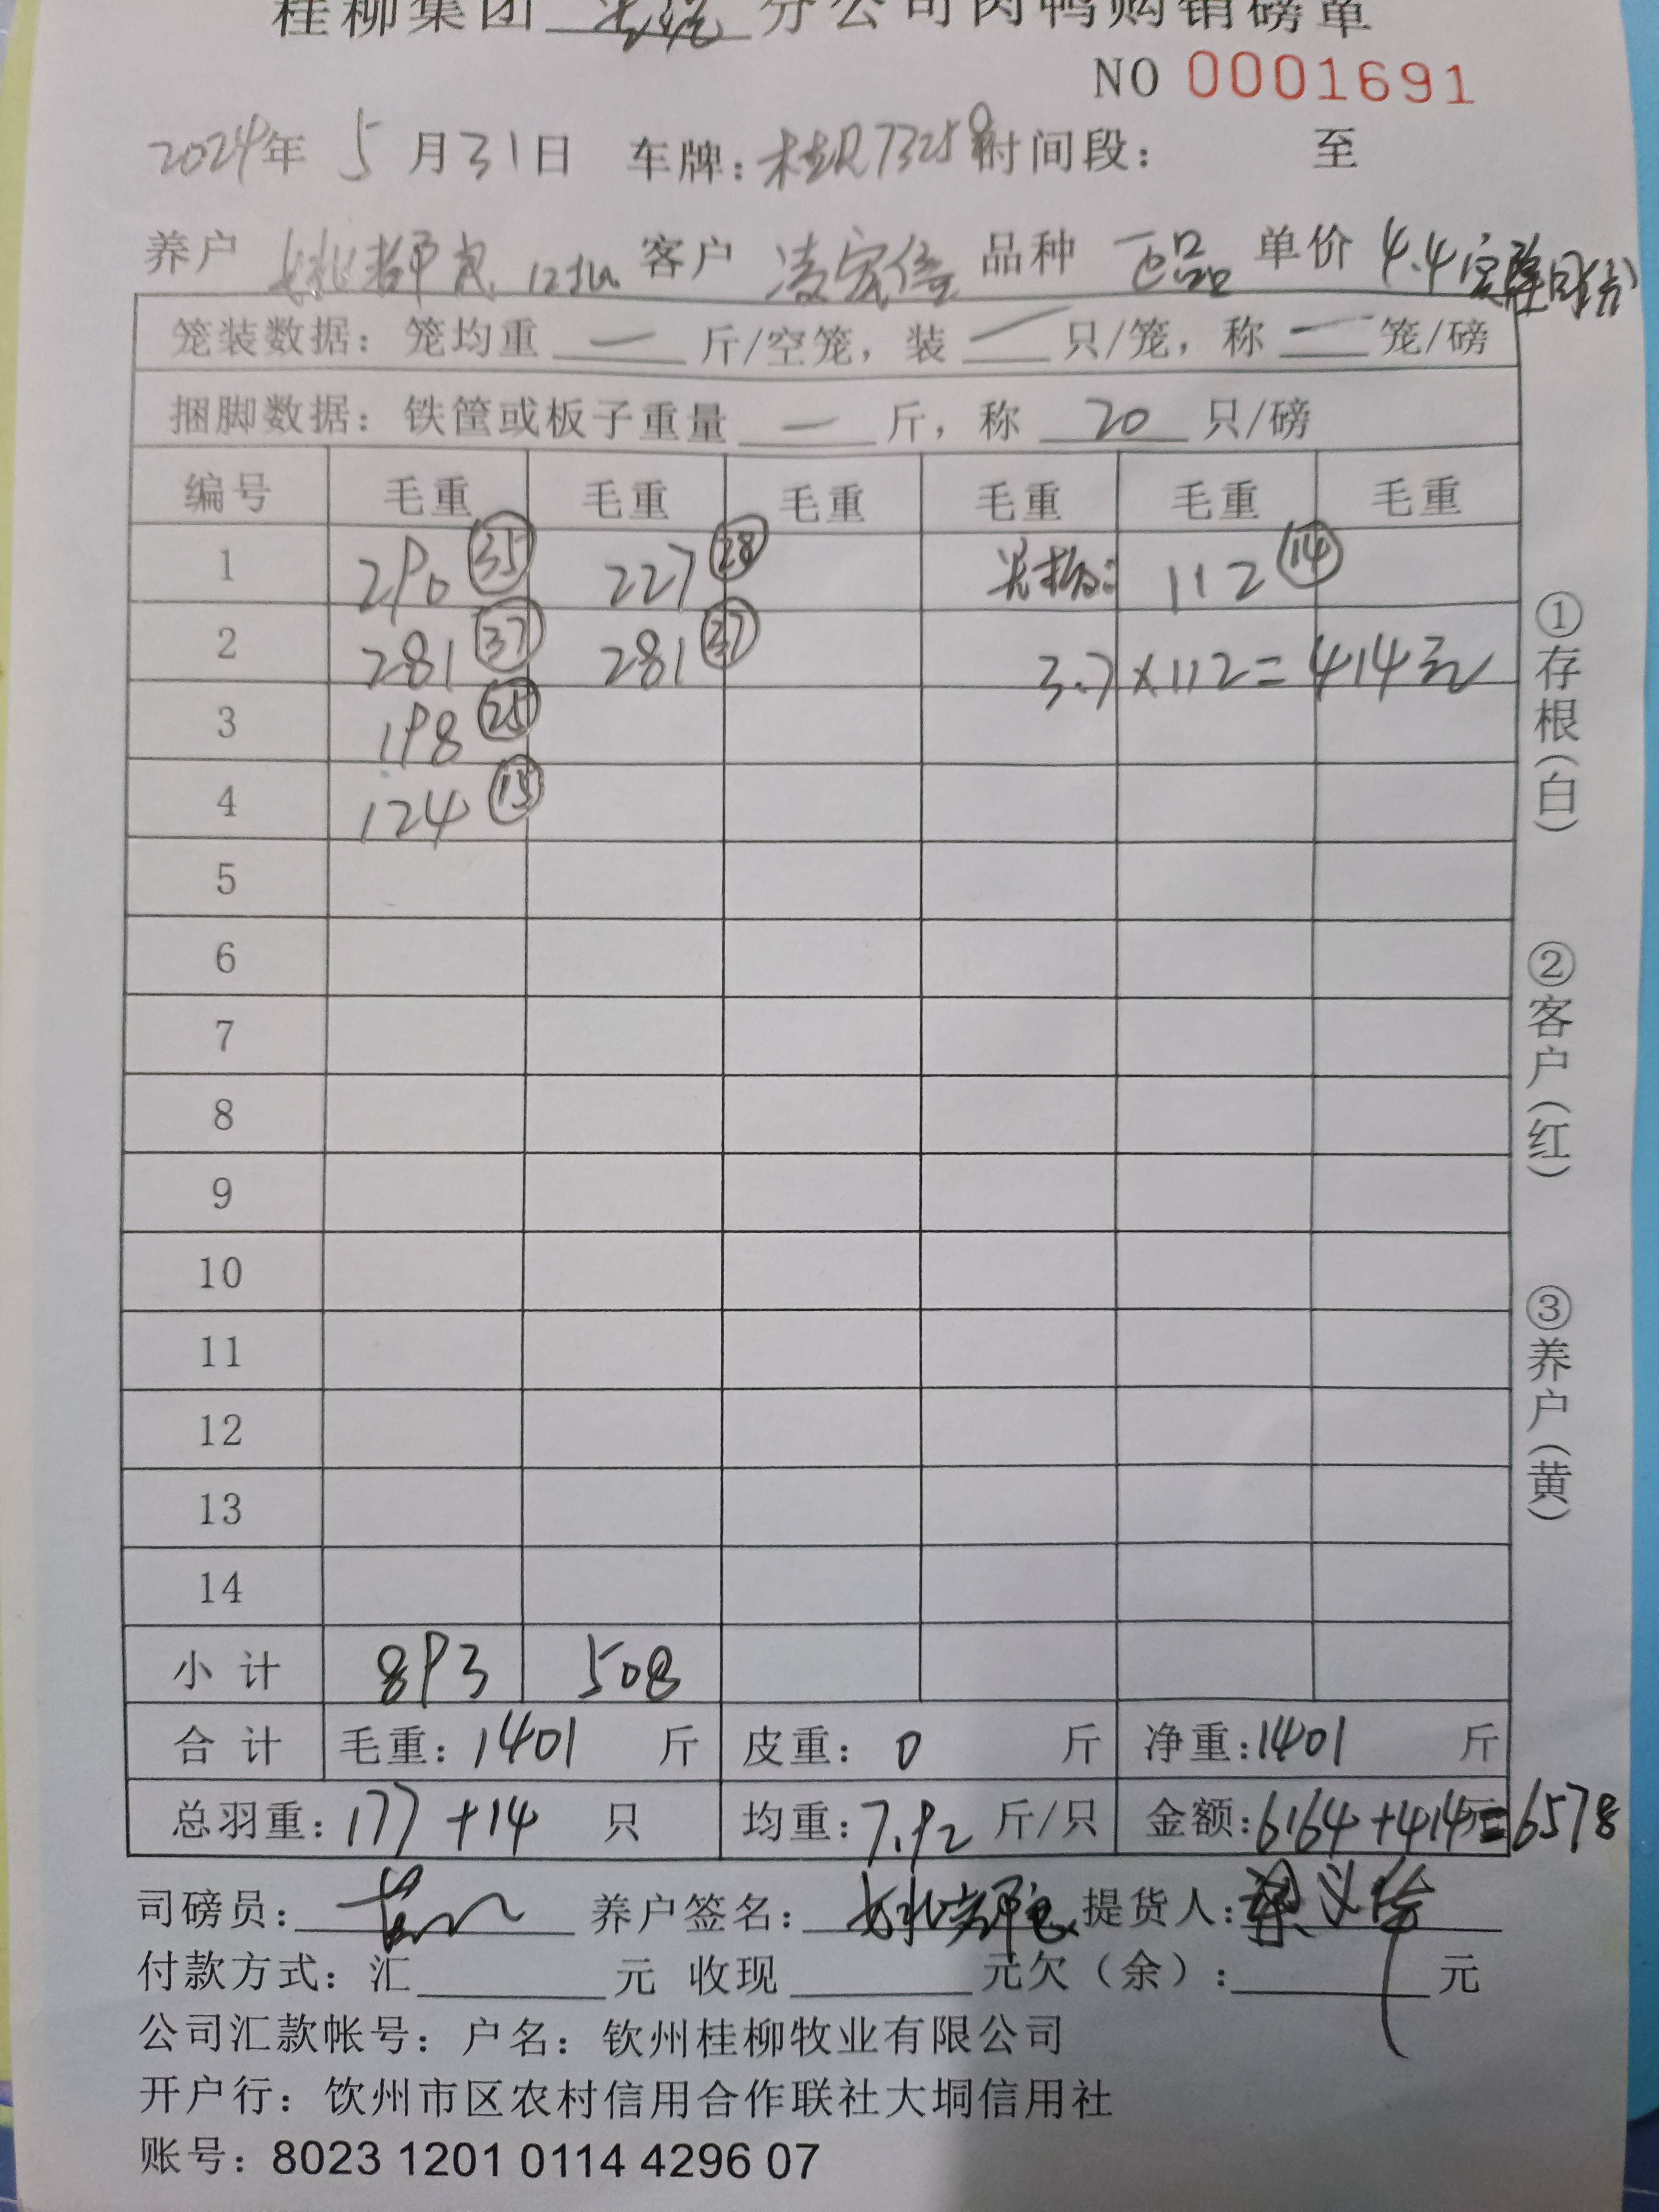 桂柳集团 分公司肉鸭购销磅单
NO 0001691
2024年 5月31日 车牌:桂R73258 时间段: 至
养户 姚 客户 凌宏 品种 品 单价 4.4
笼装数据: 笼均重 一 斤/空笼, 装 一 只/笼, 称 一 笼/磅
捆脚数据: 铁筐或板子重量 一 斤, 称 20 只/磅
编号 毛重 毛重 毛重 毛重 毛重 毛重
1 290 35 227 28 112 14
2 281 37 281 37 3.7×112=414元
3 198 25
4 124 15
5
6
7
8
9
10
11
12
13
14
小计 893 508
合计 毛重: 1401 斤 皮重: 0 斤 净重: 1401 斤
总羽重: 177+14 只 均重: 7.92 斤/只 金额: 6164+414元=6578
司磅员: 养户签名: 姚 提货人: 梁义
付款方式: 汇 元 收现 元欠(余): 元
公司汇款帐号: 户名: 钦州桂柳牧业有限公司
开户行: 饮州市区农村信用合作联社大垌信用社
账号: 8023 1201 0114 4296 07
①存根(白)
②客户(红)
③养户(黄)